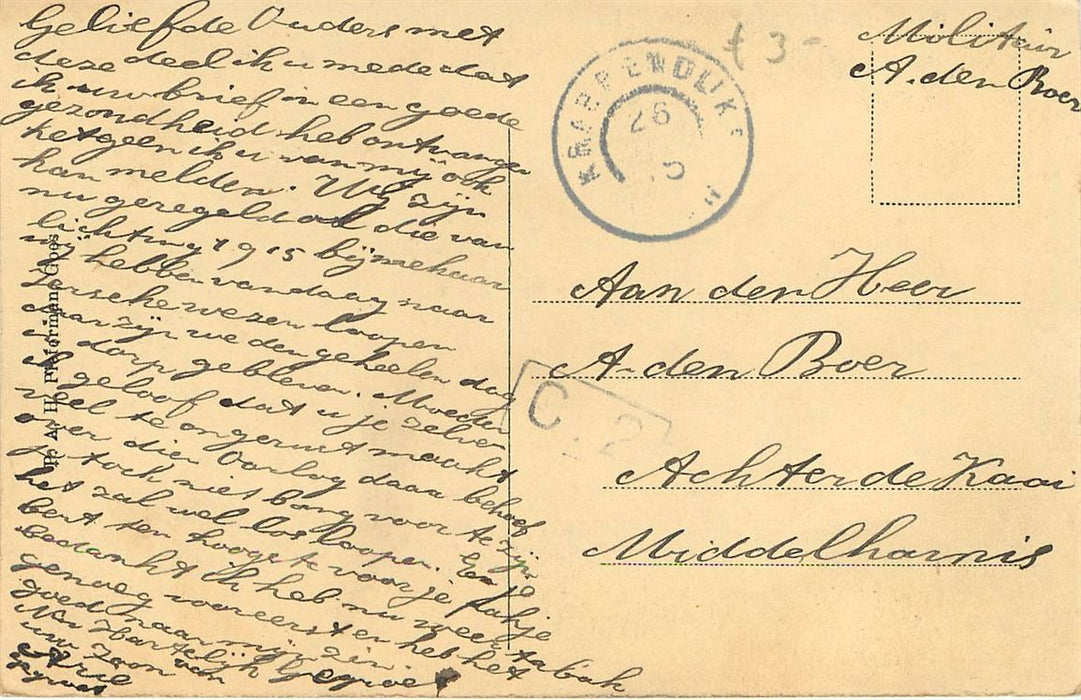 Geliefde Ouders met
deze deel ik u mede dat
ik uw brief in een goede
gezondheid heb ontvangen
hetgeen ik u van mij ook
kan melden. Wij zijn
nu geregeld al die van
lichting 1915 bij mekaar
wij hebben vandaag naar
Ierseke wezen loopen
daar zijn we den geheelen dag
in dorp gebleven. Moeder
ik geloof dat u je zelven
veel te ongerust maakt
over dien Oorlog daar behoef
je toch niet bang voor te zijn
het zal wel los loopen. En je
bent ten hoogste voor je pakje
bedankt ik heb nu weer tabak
genoeg vooreerst en heb het
goed naar mijn zin.
Nu Hartelijk gegroet
uw zoon van
Arie
gegroet
P. A. H. Pieterman Goes
KRABBENDIJKE
26
5
f 3-
Militair
A. den Boer
Aan den Heer
A. den Boer
C 2
Achter de Kaai
Middelharnis